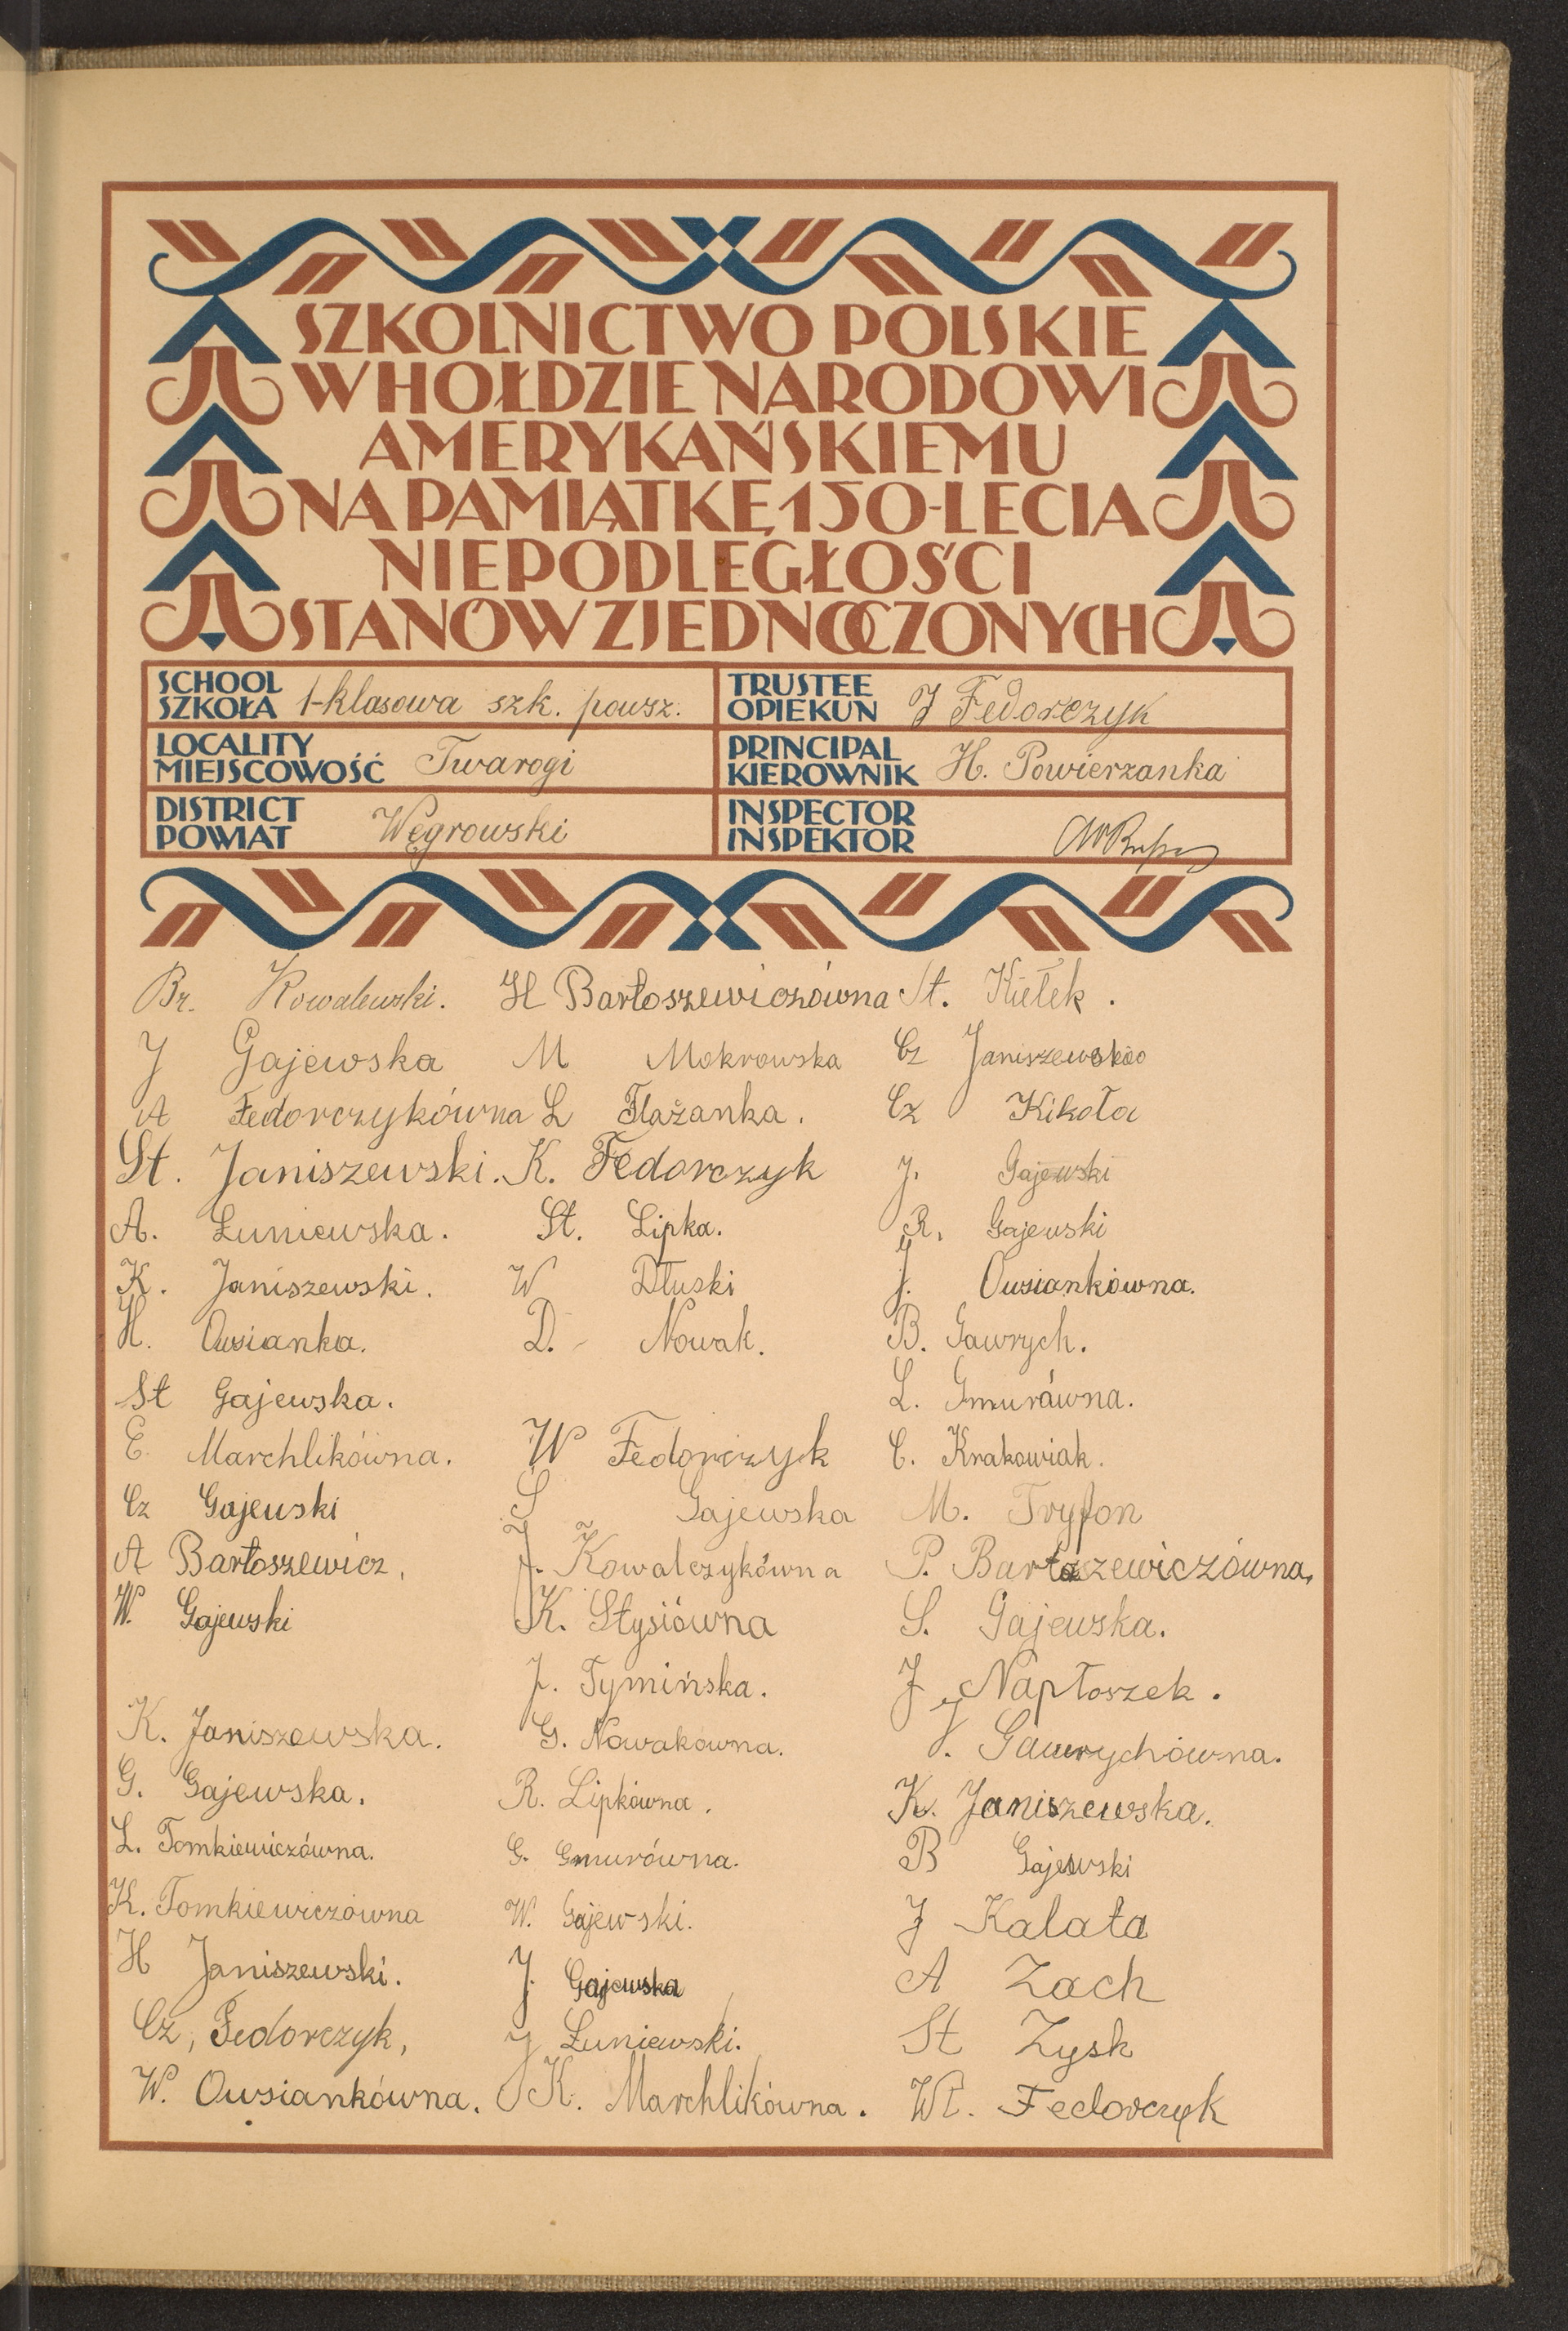 SZKOLNICTWO POLSKIE
W HOŁDZIE NARODOWI
AMERYKAŃSKIEMU
NA PAMIĄTKĘ 150-LECIA
NIEPODLEGŁOŚCI
STANÓW ZJEDNOCZONYCH
SCHOOL
SZKOŁA 1-klasowa szk. powsz.
TRUSTEE
OPIEKUN J Fedorczyk
LOCALITY
MIEJSCOWOŚĆ Twarogi
PRINCIPAL
KIEROWNIK H. Powierzanka
DISTRICT
POWIAT Węgrowski
INSPECTOR
INSPEKTOR
Br. Kowalewski.
J Gajewska
A Fedorczykówna
St. Janiszewski.
A. Łuniewska.
K. Janiszewski.
H. Owsianka.
St Gajewska.
E. Marchlikówna.
Cz Gajewski
A Bartoszewicz,
W. Gajewski
K. Janiszewska.
G. Gajewska.
L. Tomkiewiczówna.
K. Tomkiewiczówna
H Janiszewski.
Cz, Fedorczyk,
W. Owsiankówna.
H Bartoszewiczówna
M Mokrowska
L Flażanka.
K. Fedorczyk
St. Lipka.
W Dłuski
D. Nowak.
W Fedorczyk
S Gajewska
J. Kowalczykówna
K. Stysiówna
J. Tymińska.
G. Nowakówna.
R. Lipkówna.
G. Gmurówna.
W. Gajewski.
J. Gajewska
J Łuniewski.
K. Marchlikówna.
St. Kiełek.
Cz
Cz Kikoła
J. Gajewski
R. Gajewski
J. Owsiankówna.
B. Gawrych.
L. Gmurówna.
C. Krakowiak.
M. Tryfon
P. Bartoszewiczówna,
S. Gajewska.
J Napłoszek.
J. Gawrychówna.
K. Janiszewska.
B Gajewski
J Kalata
A Zach
St Zysk
Wł. Fedorczyk